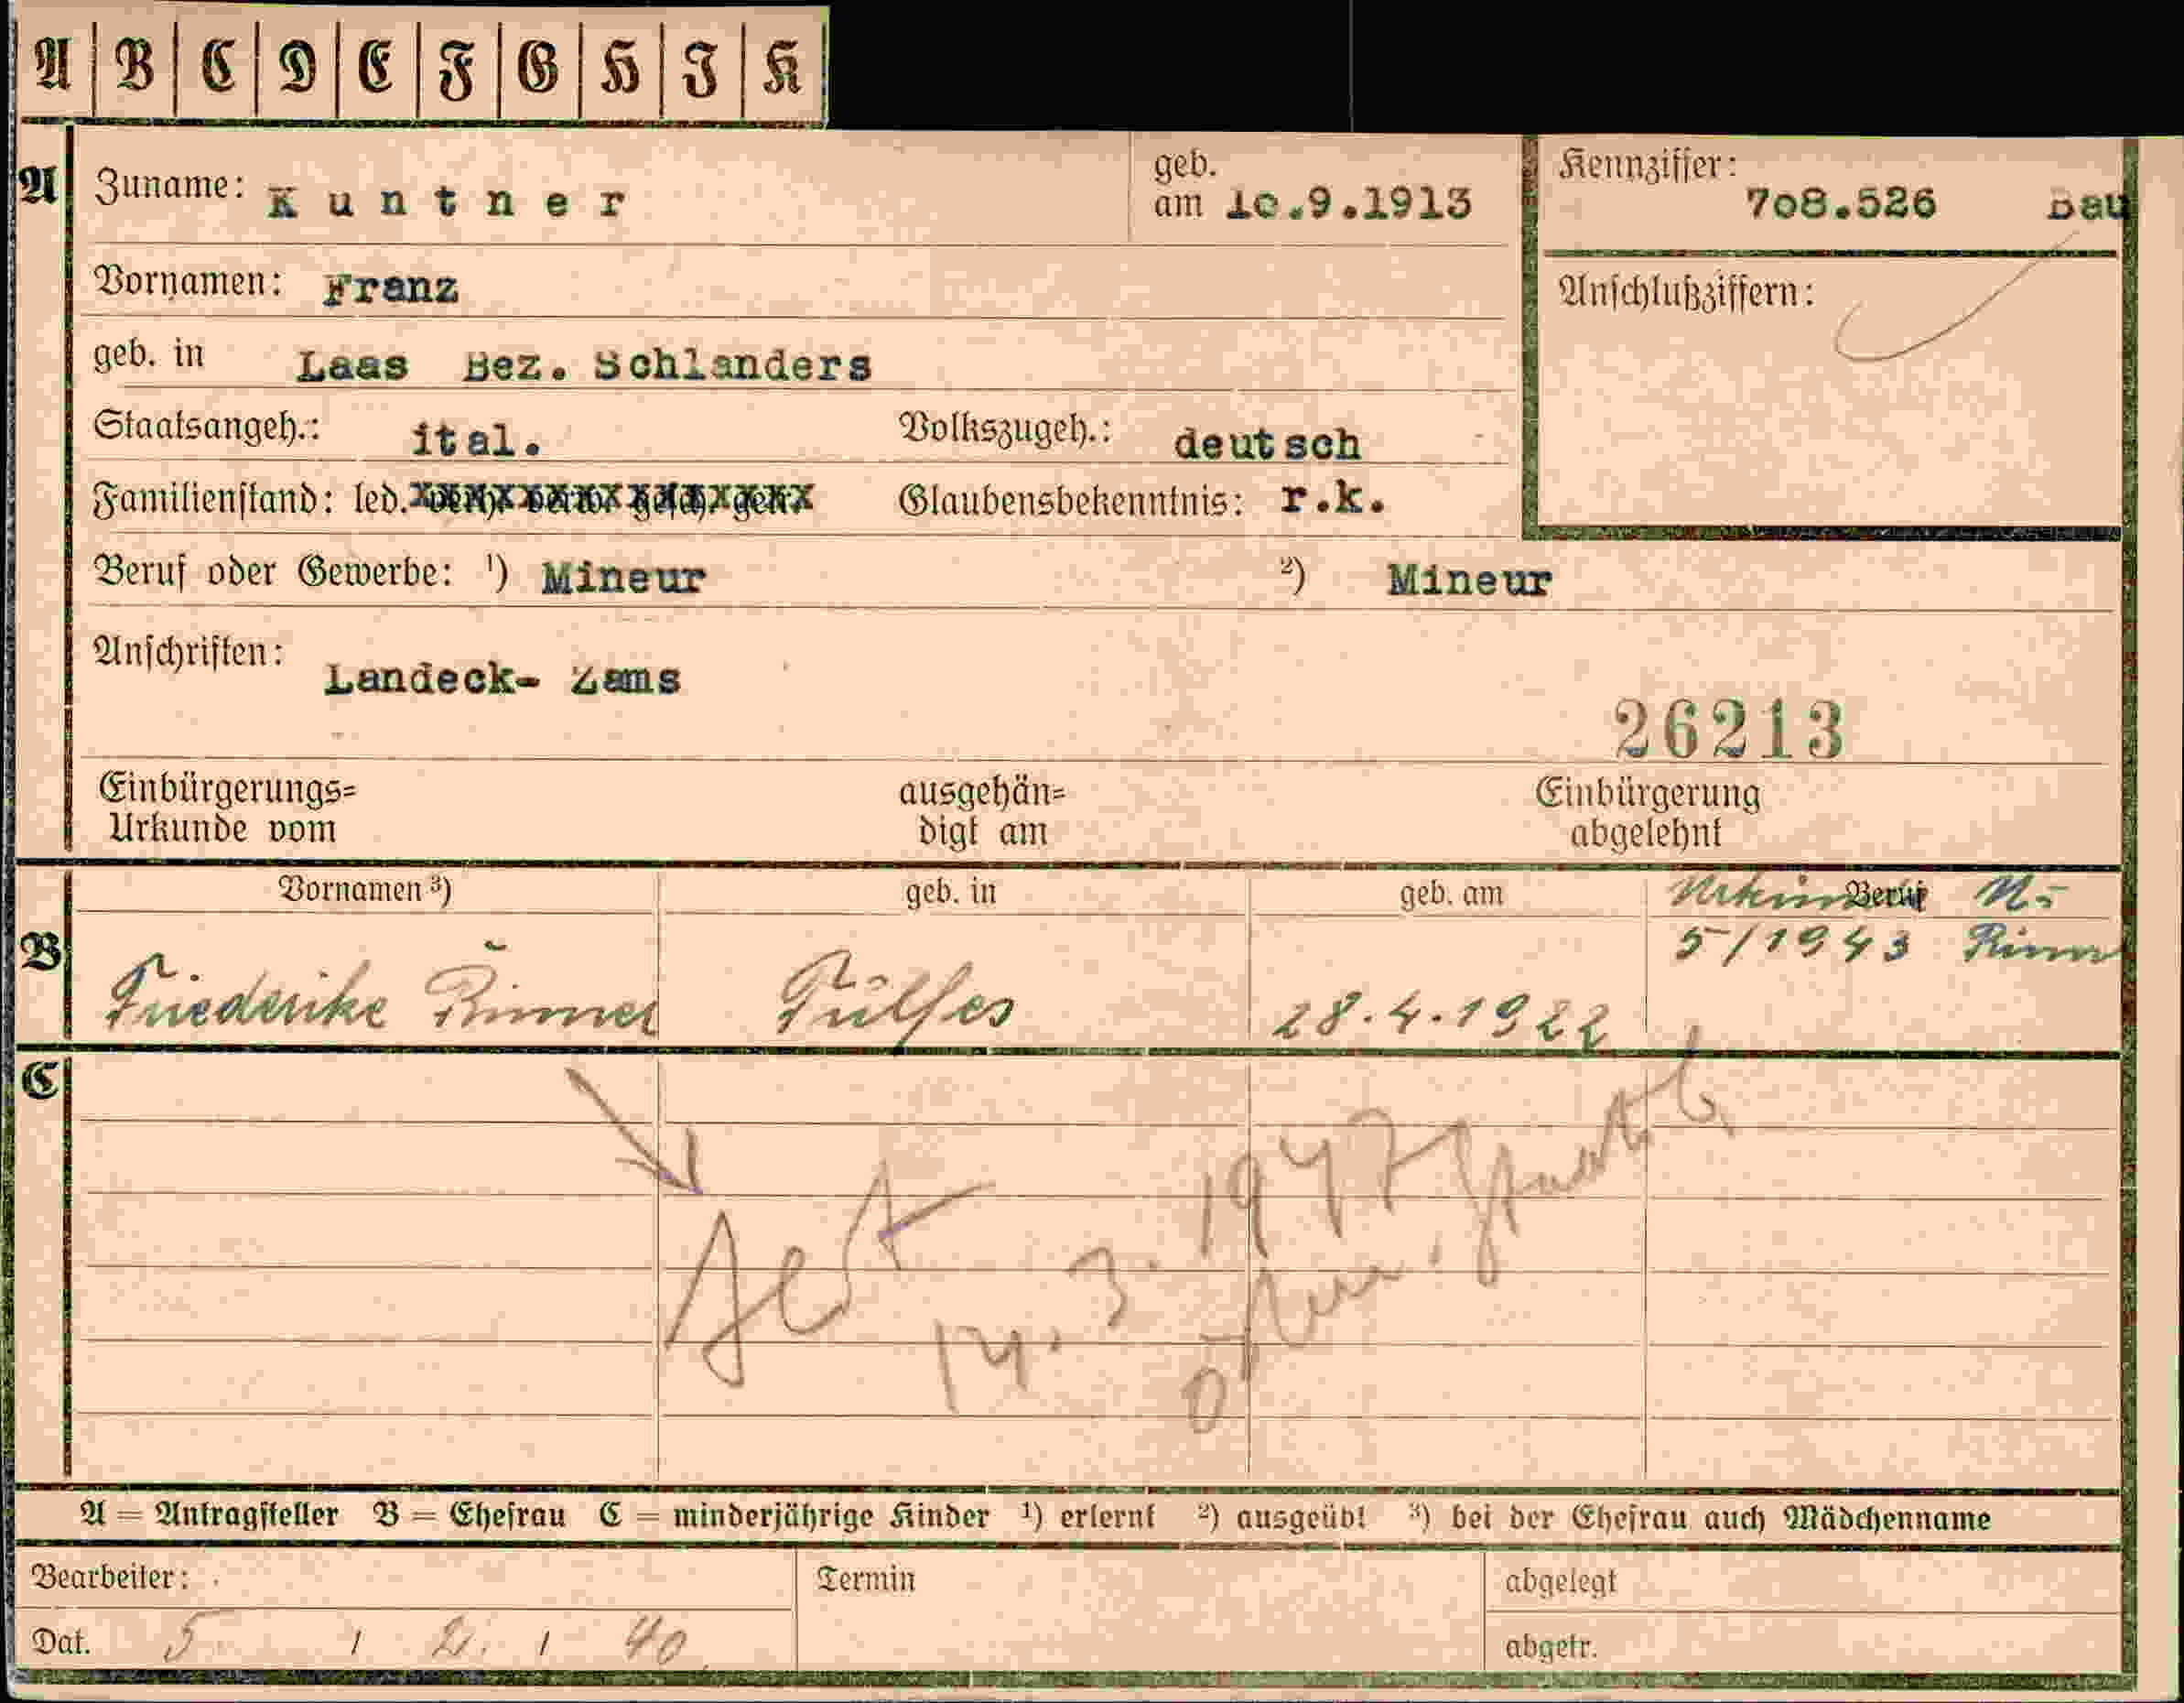 A B C D E F G H I K
A Zuname: Kuntner geb. am 10.9.1913 Kennziffer: 708.526 Bau
Vornamen: Franz
Anschlußziffern:
geb. in Laas Bez. Schlanders
Staatsangeh.: ital. Volkszugeh.: deutsch
Familienstand: led. Glaubensbekenntnis: r.k.
Beruf oder Gewerbe: ¹) Mineur ²) Mineur
Anschriften: Landeck- Zams
26213
Einbürgerungs= ausgehän= Einbürgerung
Urkunde vom digt am abgelehnt
Vornamen ³) geb. in geb. am Beruf Nr
5/1943 Rinn
B Friederike Tülfes 28.4.1922
C
Akt
14. 3. 1947
A = Antragsteller B = Ehefrau C = minderjährige Kinder ¹) erlernt ²) ausgeübt ³) bei der Ehefrau auch Mädchenname
Bearbeiter: Termin abgelegt
Dat. 5 / 2. / 40 abgetr.